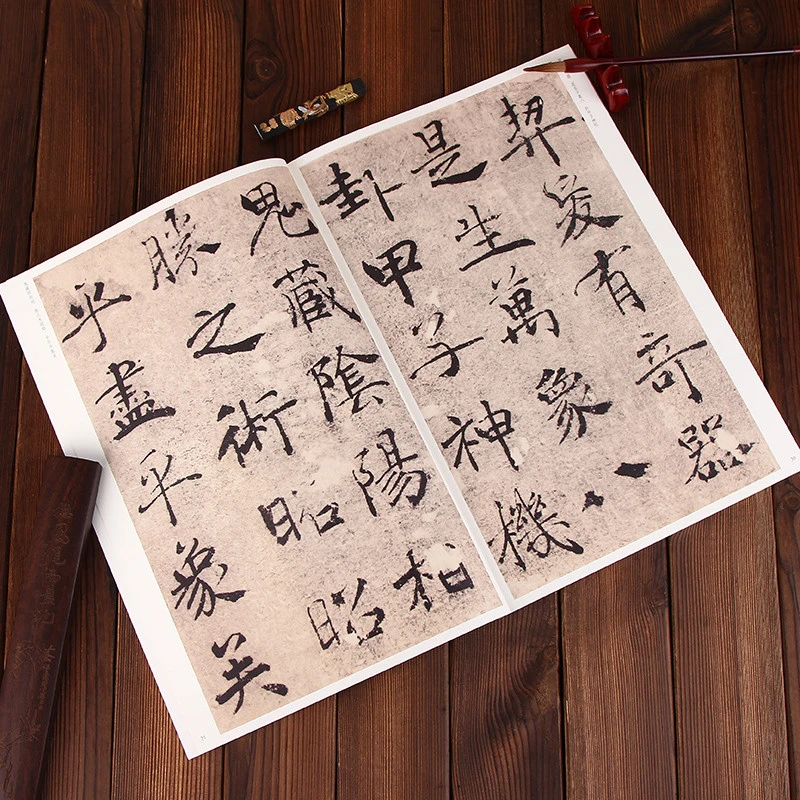 契爰有奇器
是生萬象八
卦甲子神機
鬼藏陰陽相
勝之術昭昭
乎盡乎象矣